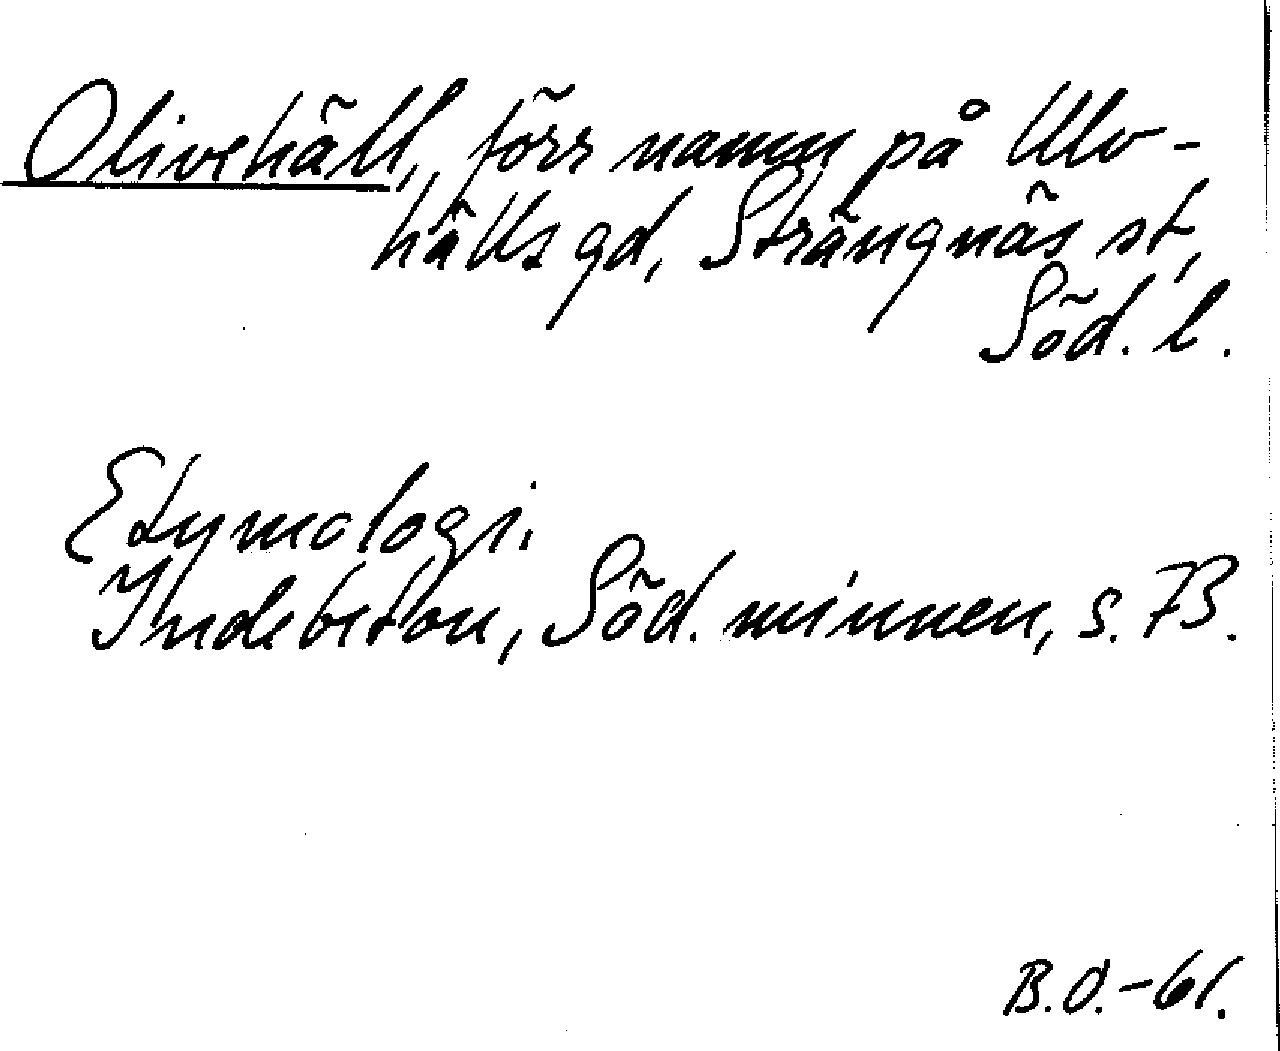 Olivehäll, förr namn på Ulv-
hälls gd, Strängnäs st,
Söd. l.
Etymologi.
Indebetou, Söd. minnen, s. 73.
B.O.-61.